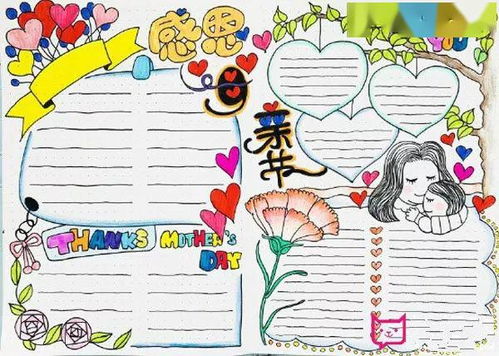 感恩
母亲节
THANKS MOTHER'S
DAY